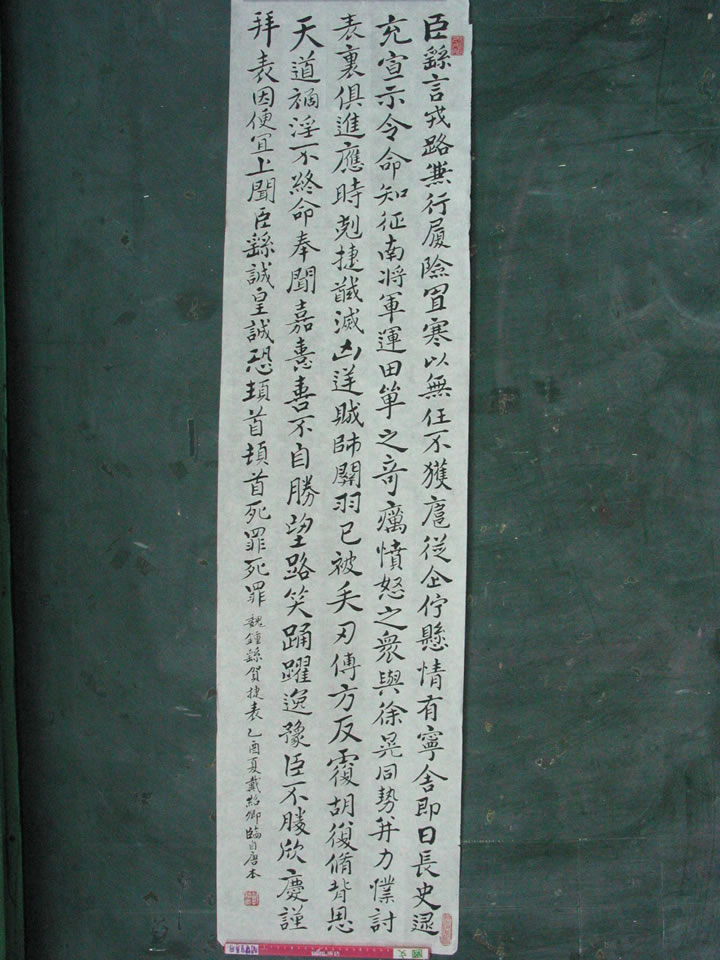 臣繇言戎路兼行履險冒寒以無任不獲扈從企佇懸情有寧舍即日長史逯
充宣示令命知征南將軍運田單之奇厲憤怒之衆與徐晃同勢并力懍討
表裏俱進應時剋捷馘滅凶逆賊帥關羽已被矢刃傅方反覆胡復脩背恩
天道禍淫不終命奉聞嘉憙喜不自勝望路笑踊躍逸豫臣不勝欣慶謹
拜表因便宜上聞臣繇誠皇誠恐頓首頓首死罪死罪
魏鍾繇賀捷表乙酉夏戴紹卿臨自唐本
國文